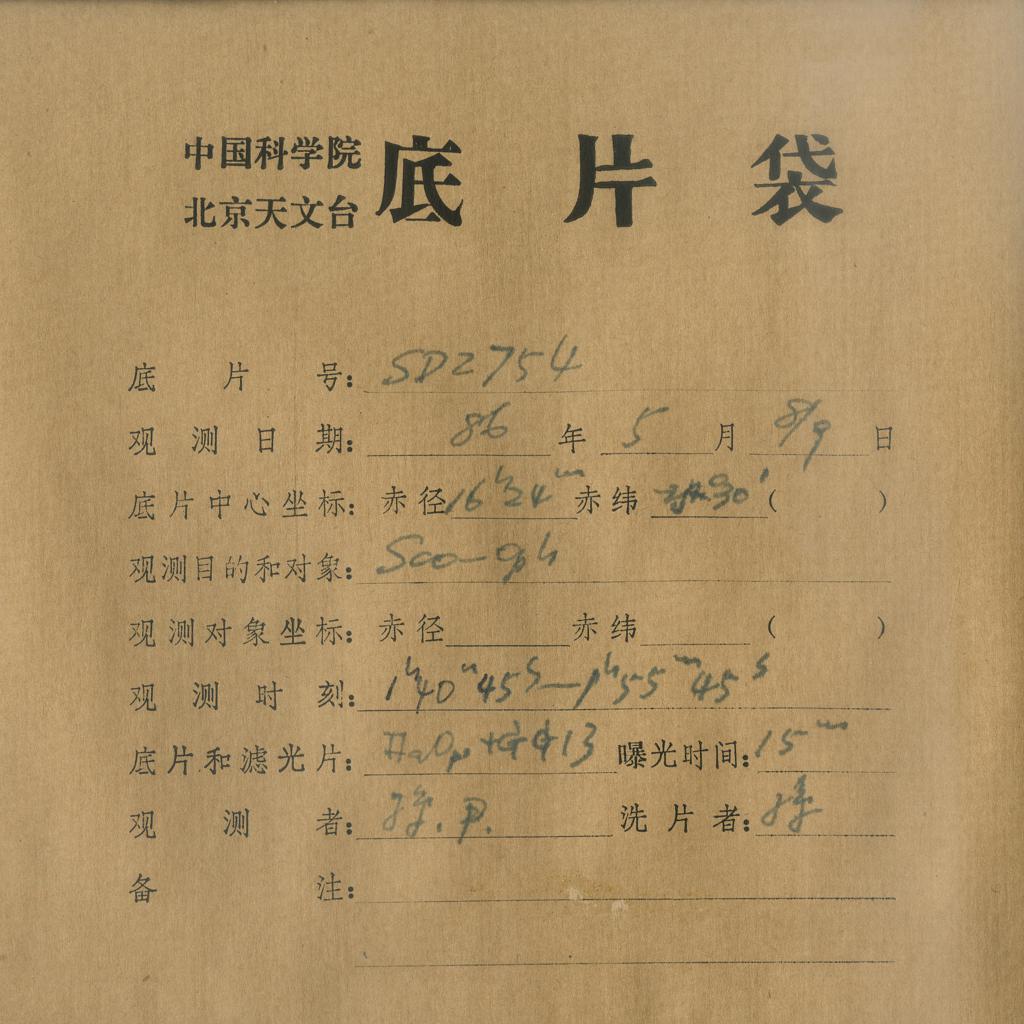 中国科学院
北京天文台
底片袋
底片号：SD2754
观测日期：86年5月8/9日
底片中心坐标：赤径16ʰ24ᵐ赤纬30′（ ）
观测目的和对象：Sco-oph
观测对象坐标：赤径 赤纬 （ ）
观测时刻：1ʰ40ᵐ45ˢ—1ʰ55ᵐ45ˢ
底片和滤光片：+GG13 曝光时间：15ᵐ
观测者： 洗片者：
备注：